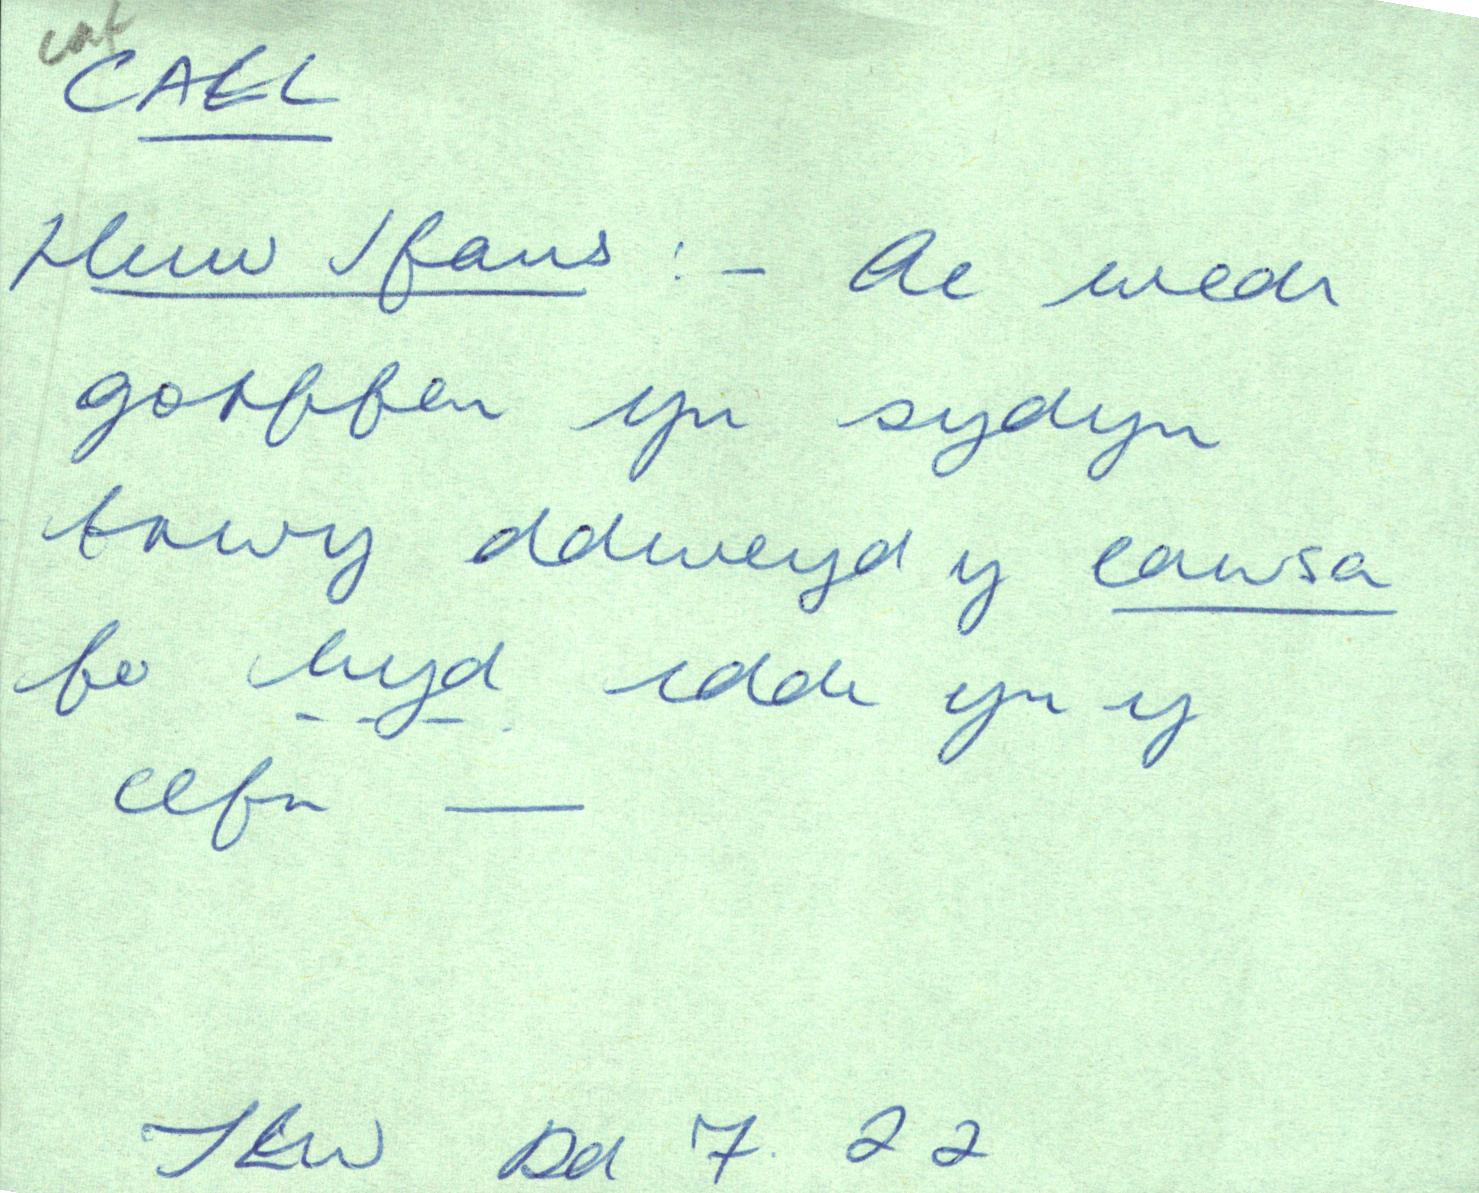 caf
CAEL
Huw Ifans :- Ac wedi
gorffen yn sydyn
trwy ddweyd y cawsa
fo hyd iddi yn y
cefn —
IEW Dd 7. 22